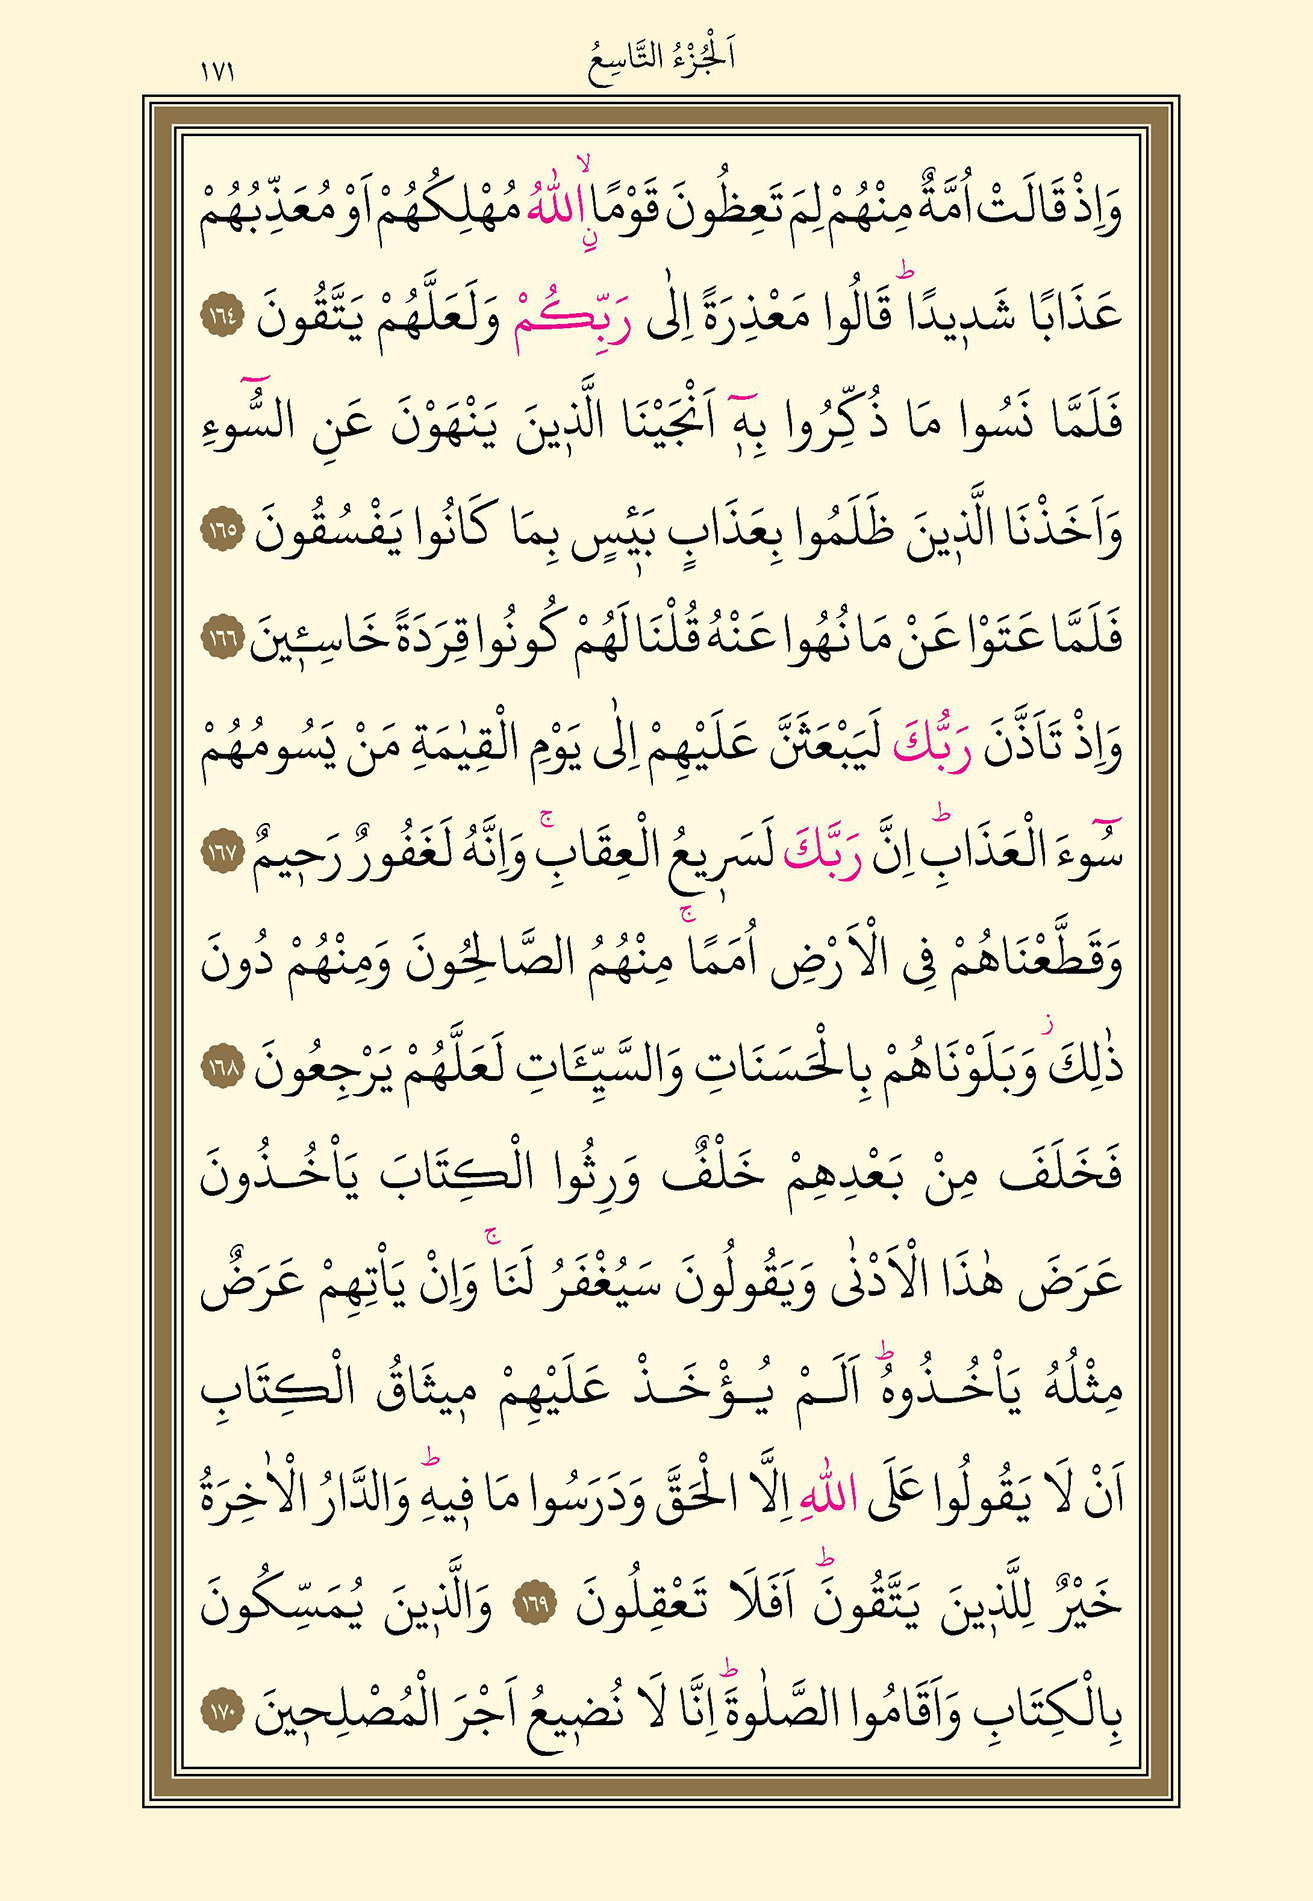 اَلْجُزْءُ التَّاسِعُ
١٧١
وَاِذْ قَالَتْ اُمَّةٌ مِنْهُمْ لِمَ تَعِظُونَ قَوْمًاۙ ۨاللّٰهُ مُهْلِكُهُمْ اَوْ مُعَذِّبُهُمْ
عَذَابًا شَد۪يدًاۜ قَالُوا مَعْذِرَةً اِلٰى رَبِّكُمْ وَلَعَلَّهُمْ يَتَّقُونَ ١٦٤
فَلَمَّا نَسُوا مَا ذُكِّرُوا بِه۪ٓ اَنْجَيْنَا الَّذ۪ينَ يَنْهَوْنَ عَنِ السُّٓوءِ
وَاَخَذْنَا الَّذ۪ينَ ظَلَمُوا بِعَذَابٍ بَـ۪ٔيسٍ بِمَا كَانُوا يَفْسُقُونَ ١٦٥
فَلَمَّا عَتَوْا عَنْ مَا نُهُوا عَنْهُ قُلْنَا لَهُمْ كُونُوا قِرَدَةً خَاسِـ۪ٔينَ ١٦٦
وَاِذْ تَاَذَّنَ رَبُّكَ لَيَبْعَثَنَّ عَلَيْهِمْ اِلٰى يَوْمِ الْقِيٰمَةِ مَنْ يَسُومُهُمْ
سُٓوءَ الْعَذَابِۜ اِنَّ رَبَّكَ لَسَر۪يعُ الْعِقَابِۚ وَاِنَّهُ لَغَفُورٌ رَح۪يمٌ ١٦٧
وَقَطَّعْنَاهُمْ فِى الْاَرْضِ اُمَمًاۚ مِنْهُمُ الصَّالِحُونَ وَمِنْهُمْ دُونَ
ذٰلِكَۘ وَبَلَوْنَاهُمْ بِالْحَسَنَاتِ وَالسَّيِّـَٔاتِ لَعَلَّهُمْ يَرْجِعُونَ ١٦٨
فَخَلَفَ مِنْ بَعْدِهِمْ خَلْفٌ وَرِثُوا الْكِتَابَ يَاْخُذُونَ
عَرَضَ هٰذَا الْاَدْنٰى وَيَقُولُونَ سَيُغْفَرُ لَنَاۚ وَاِنْ يَاْتِهِمْ عَرَضٌ
مِثْلُهُ يَاْخُذُوهُۜ اَلَمْ يُؤْخَذْ عَلَيْهِمْ م۪يثَاقُ الْكِتَابِ
اَنْ لَا يَقُولُوا عَلَى اللّٰهِ اِلَّا الْحَقَّ وَدَرَسُوا مَا ف۪يهِۜ وَالدَّارُ الْاٰخِرَةُ
خَيْرٌ لِلَّذ۪ينَ يَتَّقُونَۜ اَفَلَا تَعْقِلُونَ ١٦٩ وَالَّذ۪ينَ يُمَسِّكُونَ
بِالْكِتَابِ وَاَقَامُوا الصَّلٰوةَۜ اِنَّا لَا نُض۪يعُ اَجْرَ الْمُصْلِح۪ينَ ١٧٠